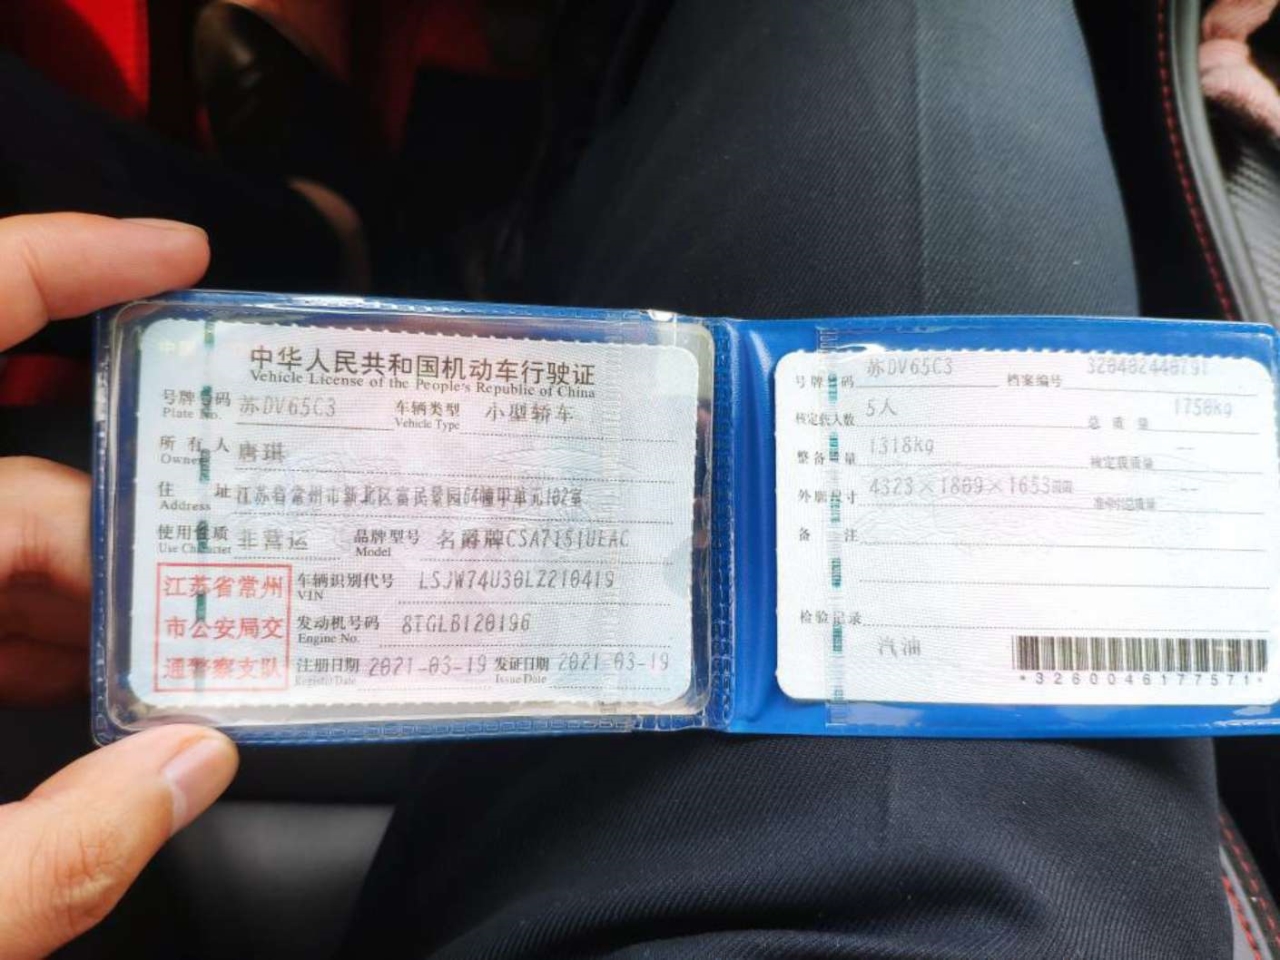 中华人民共和国机动车行驶证
Vehicle License of the People's Republic of China
号牌号码 苏DV65C3 车辆类型 小型轿车
Plate No. Vehicle Type
所有人 唐琪
Owner
住址 江苏省常州市新北区富民景园64幢甲单元102室
Address
使用性质 非营运 品牌型号 名爵牌CSA7151UEAC
Use Character Model
江苏省常州
市公安局交
通警察支队
车辆识别代号 LSJW74U30LZ210419
VIN
发动机号码 8TGLB120196
Engine No.
注册日期 2021-03-19 发证日期 2021-03-19
Register Date Issue Date
号牌号码 苏DV65C3 档案编号 320402440791
核定载人数 5人 总质量 1750kg
整备质量 1318kg 核定载质量 --
外廓尺寸 4323×1809×1653mm 准牵引总质量 --
备注
检验记录
汽油
*3260046177571*